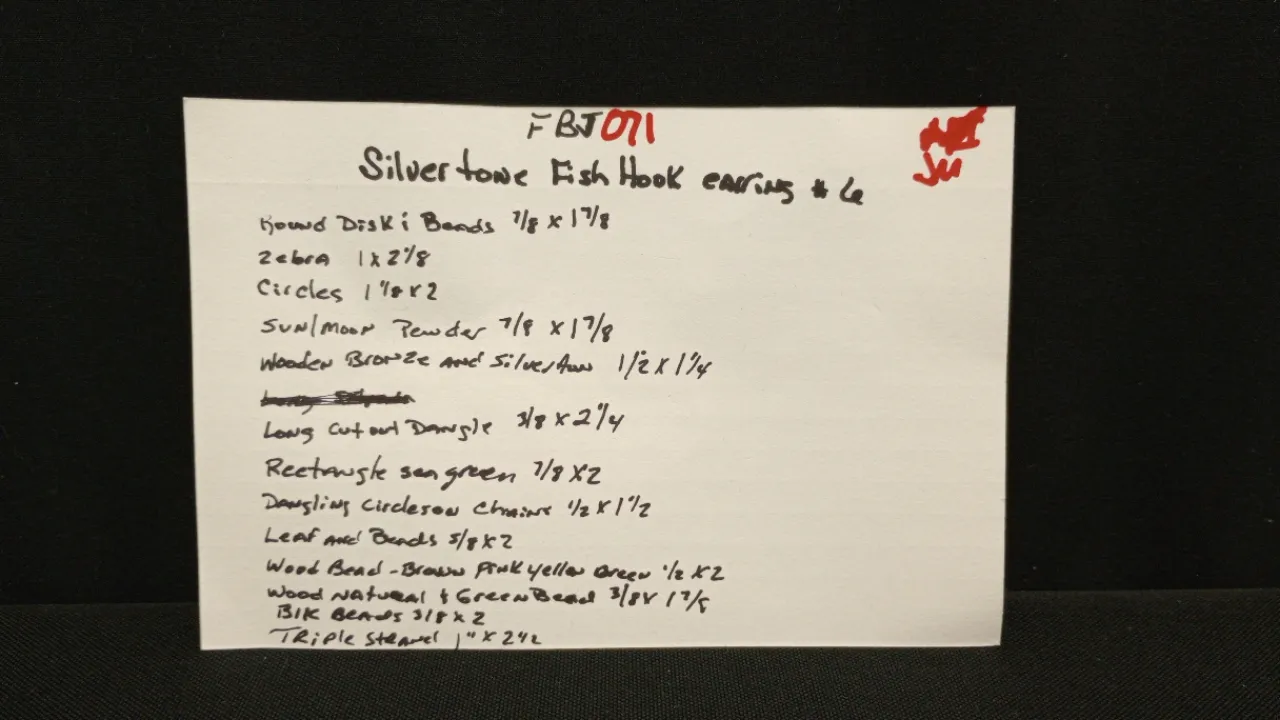 FBJ071
Silvertone Fish Hook earring # 6
Round Disk i Beads 7/8 x 1 7/8
Zebra 1 x 2 1/8
Circles 1 1/8 x 2
Sun/Moon Pewder 7/8 x 1 7/8
Wooden Bronze and Silverton 1/2 x 1 1/4
Long Cut out Dangle 3/8 x 2 1/4
Rectangle sea green 7/8 x 2
Dangling Circles on Chains 1/2 x 1 1/2
Leaf and Beads 5/8 x 2
Wood Bead - Brown Pink Yellow Green 1/2 x 2
Wood Natural & Green Bead 3/8 x 1 7/8
Blk Beads 3/8 x 2
Triple Strand 1" x 2 1/2